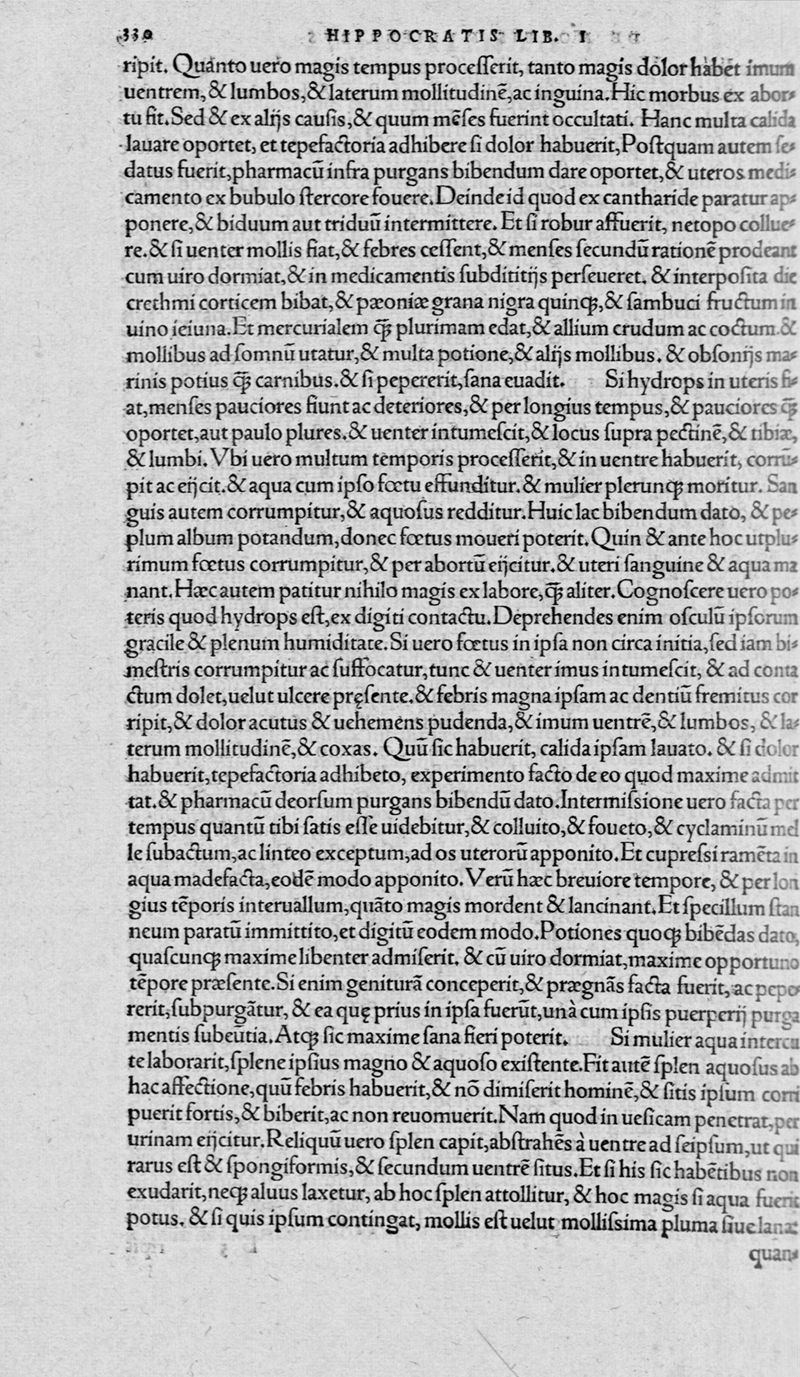 330 HIPPOCRATIS LIB. I
ripit. Quanto uero magis tempus proceſſerit, tanto magis dolor habet imum
uentrem, & lumbos, & laterum mollitudinē, ac inguina. Hic morbus ex abor-
tu fit. Sed & ex alijs cauſis, & quum mēſes fuerint occultati. Hanc multa calida
lauare oportet, et tepefactoria adhibere ſi dolor habuerit, Poſtquam autem ſe-
datus fuerit, pharmacū infra purgans bibendum dare oportet, & uteros medi-
camento ex bubulo ſtercore fouere. Deinde id quod ex cantharide paratur ap-
ponere, & biduum aut triduū intermittere. Et ſi robur affuerit, netopo collue-
re. & ſi uenter mollis fiat, & febres ceſſent, & menſes ſecundū rationē prodeant
cum uiro dormiat, & in medicamentis ſubdititijs perſeueret. & interpoſita die
crethmi corticem bibat, & pæoniæ grana nigra quinq;, & ſambuci fructum in
uino ieiuna. Et mercurialem q̄ plurimam edat, & allium crudum ac coctum. &
mollibus ad ſomnū utatur, & multa potione, & alijs mollibus. & obſonijs ma-
rinis potius q̄ carnibus. & ſi pepererit, ſana euadit. Si hydrops in uteris fi-
at, menſes pauciores fiunt ac deteriores, & per longius tempus, & pauciores q̄
oportet, aut paulo plures. & uenter intumeſcit, & locus ſupra pectinē, & tibiæ,
& lumbi. Vbi uero multum temporis proceſſerit, & in uentre habuerit, corrū-
pit ac eijcit. & aqua cum ipſo fœtu effunditur. & mulier plerunq; moritur. San
guis autem corrumpitur, & aquoſus redditur. Huic lac bibendum dato, & pe-
plum album potandum, donec fœtus moueri poterit. Quin & ante hoc utplu-
rimum fœtus corrumpitur, & per abortū eijcitur. & uteri ſanguine & aqua ma
nant. Hæc autem patitur nihilo magis ex labore, q̄ aliter. Cognoſcere uero po-
teris quod hydrops eſt, ex digiti contactu. Deprehendes enim oſculū ipſorum
gracile & plenum humiditate. Si uero fœtus in ipſa non circa initia, ſed iam bi-
meſtris corrumpitur ac ſuffocatur, tunc & uenter imus intumeſcit, & ad conta
ctum dolet, uelut ulcere pręſente. & febris magna ipſam ac dentiū fremitus cor
ripit, & dolor acutus & uehemens pudenda, & imum uentrē, & lumbos, & la-
terum mollitudinē, & coxas. Quū ſic habuerit, calida ipſam lauato. & ſi dolor
habuerit, tepefactoria adhibeto, experimento facto de eo quod maxime admit
tat. & pharmacū deorſum purgans bibendū dato. Intermiſsione uero facta per
tempus quantū tibi ſatis eſſe uidebitur, & colluito, & foueto, & cyclaminū mel
le ſubactum, ac linteo exceptum, ad os uterorū apponito. Et cupreſsi ramēta in
aqua madefacta, eodē modo apponito. Verū hæc breuiore tempore, & per lon
gius tēporis interuallum, quāto magis mordent & lancinant. Et ſpecillum ſtan
neum paratū immittito, et digitū eodem modo. Potiones quoq; bibēdas dato,
quaſcunq; maxime libenter admiſerit. & cū uiro dormiat, maxime opportuno
tēpore præſente. Si enim geniturā conceperit, & prægnās facta fuerit, ac pepe-
rerit, ſubpurgātur, & ea quę prius in ipſa fuerūt, unà cum ipſis puerperij purga
mentis ſubeūtia. Atq; ſic maxime ſana fieri poterit. Si mulier aqua intercu
te laborarit, ſplene ipſius magno & aquoſo exiſtente. Fit autē ſplen aquoſus ab
hac affectione, quū febris habuerit, & nō dimiſerit hominē, & ſitis ipſum corri
puerit fortis, & biberit, ac non reuomuerit. Nam quod in ueſicam penetrat, per
urinam eijcitur. Reliquū uero ſplen capit, abſtrahēs à uentre ad ſeipſum, ut qui
rarus eſt & ſpongiformis, & ſecundum uentrē ſitus. Et ſi his ſic habētibus non
exudarit, neq; aluus laxetur, ab hoc ſplen attollitur, & hoc magis ſi aqua fuerit
potus. & ſi quis ipſum contingat, mollis eſt uelut molliſsima pluma ſiue lanæ
quan-